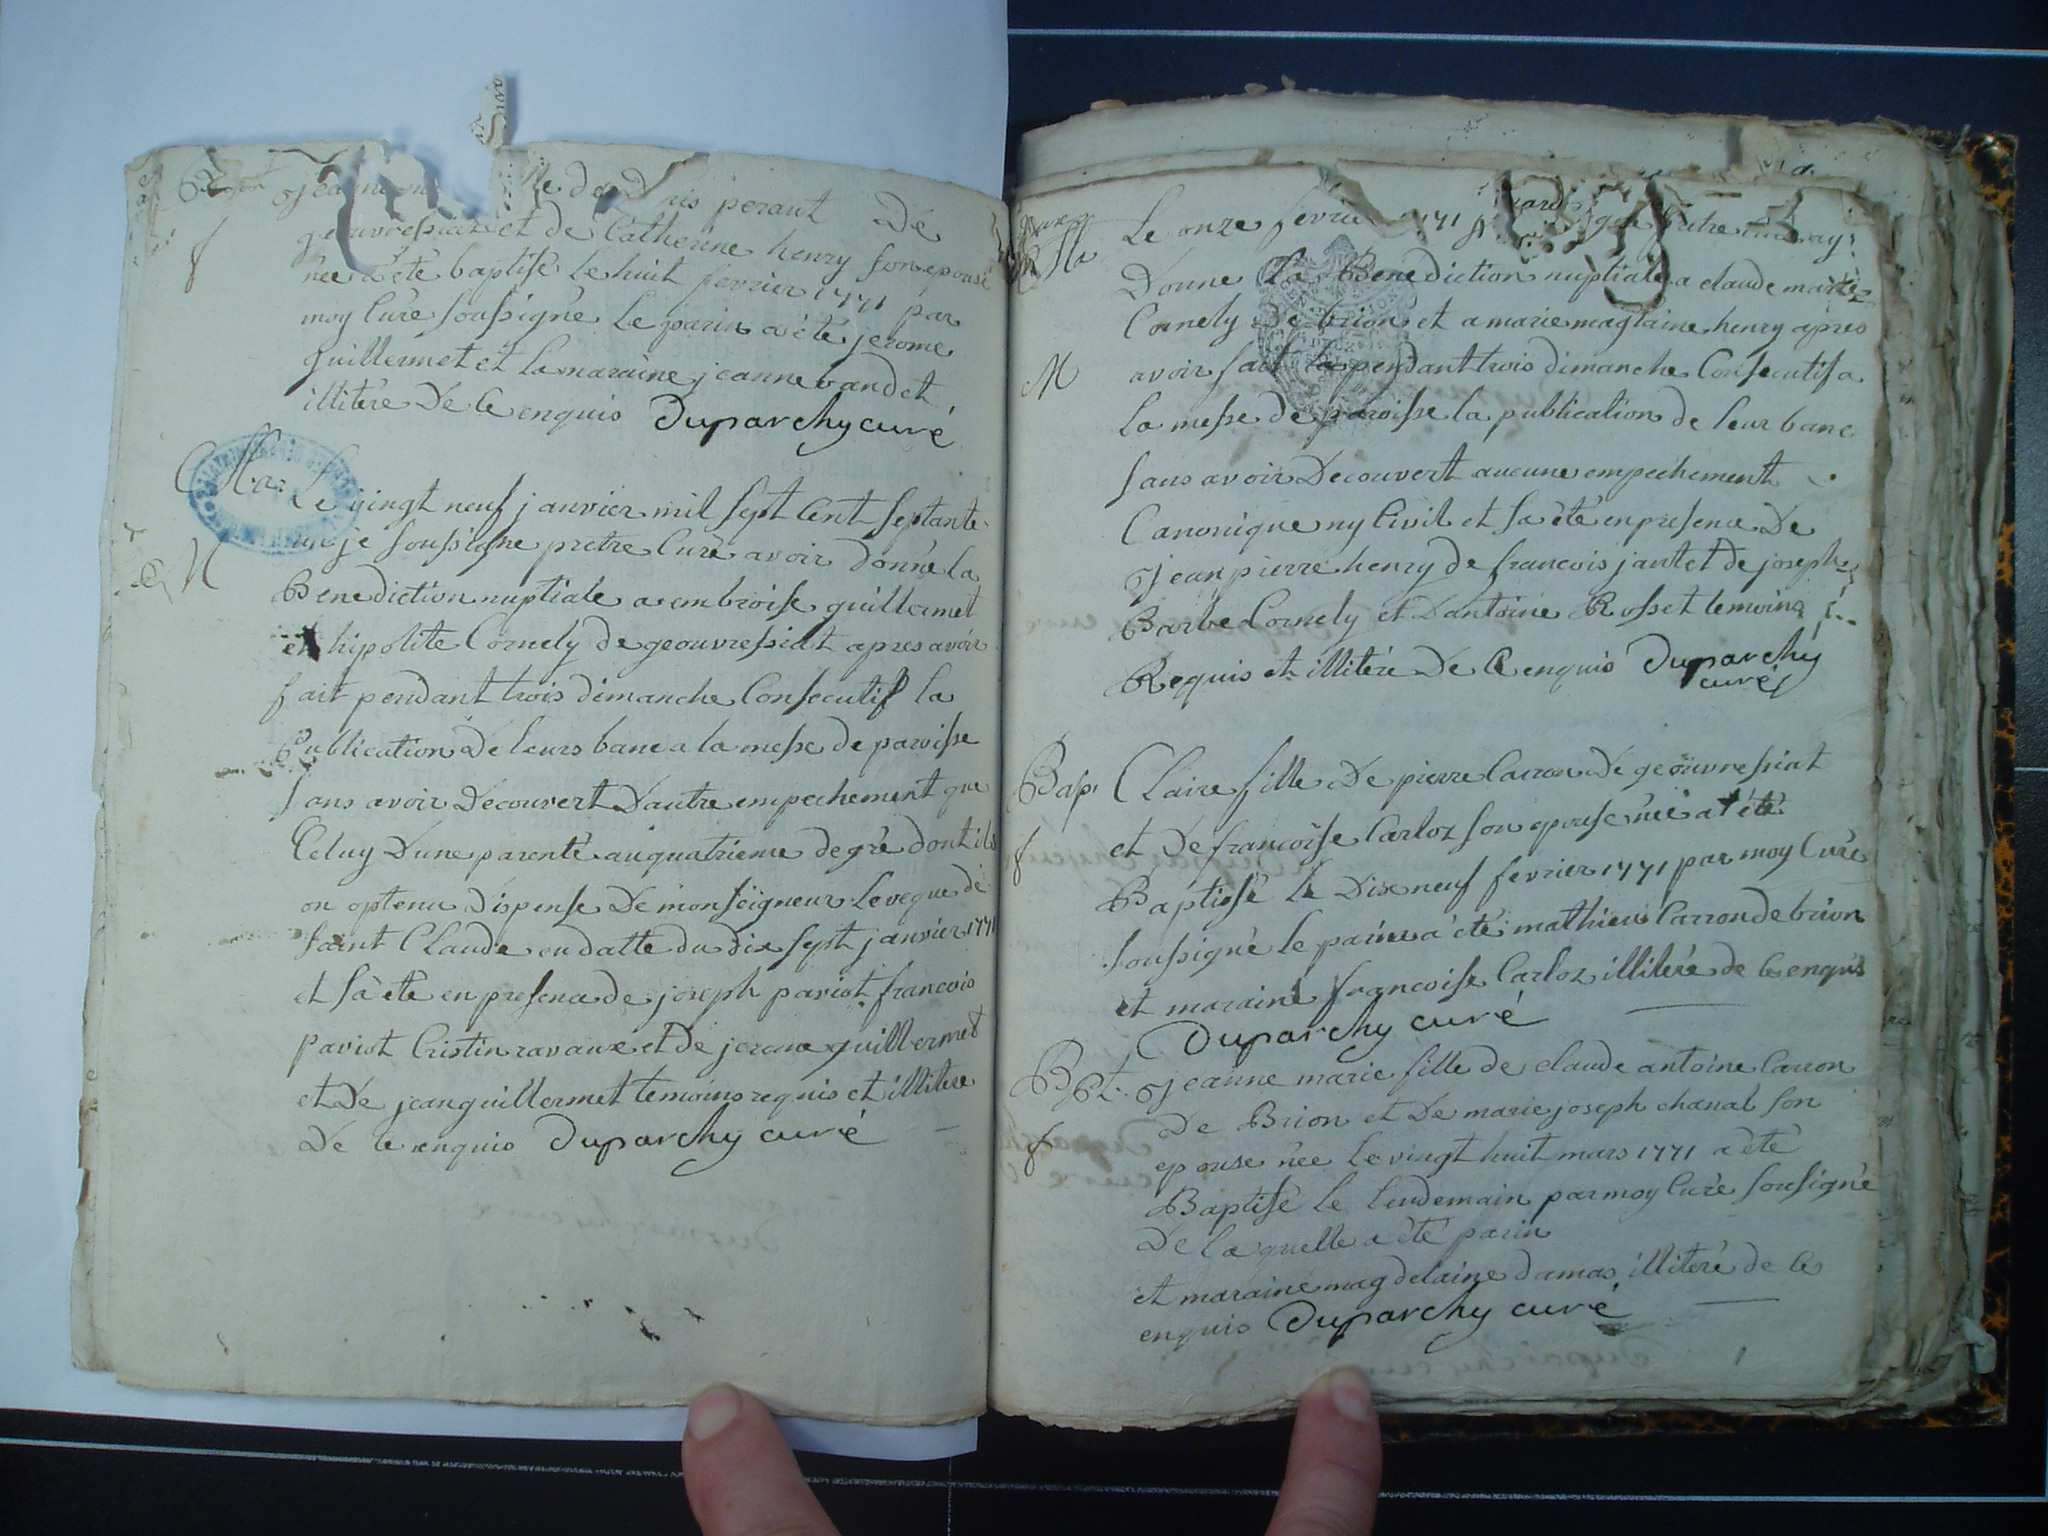 jeanne
de Denis peraut De
geouvressiat et de Catherine henry son epouse
née a été baptise le huit fevrier 1771 par
moy Curé soussigné Le parin a été jerome
guillermet et la maraine jeanne vandet
illitéré De Ce enquis Duparchy curé
Mar
Le vingt neuf janvier mil sept Cent septante
un je soussigne pretre Curé avoir donné la
M
Benediction nuptiale a embroise guillermet
et hipolite Cornely de geouvressiat apres avoir
fait pendant trois dimanche Consecutif la
Publication De leurs banc a la messe de paroisse
sans avoir Découvert Dautre empechement que
Celuy Dune parenté au quatrieme degré dont ils
on optenu Dispense De monseigneur Leveque de
saint Claude en datte du dix sept janvier 1771
et sa été en presence de joseph paviot francois
paviot Cristin ravaux et de jerome guillermet
et De jean guillermet temoins requis et illitere
De ce enquis Duparchy curé
Le onze fevrier 1771 pretre curé ay
Donné la Benediction nuptiale a claude
Cornely De brion et a marie maglaine henry apres
M
avoir fait pendant trois dimanche Consecutif a
la messe de paroisse la publication de leur banc
sans avoir Découvert aucune empechement
Canonique ny Civil et sa été en presence De
jean pierre henry de francois jantet de joseph
Barbe Cornely et Dantoine Rosset temoins
Requis et illitéré De Ce enquis Duparchy
curé
Bap. Claire fille De pierre Carron De geouvressiat
et De francoise Carloz son epouse née a été
f
Baptisé le Dix neuf fevrier 1771 par moy Curé
soussigné le parin a été mathieu Carron de brion
et maraine francoise Carloz illiteré de Ce enquis
Duparchy curé
Bpt. jeanne marie fille de claude antoine Carron
de Brion et De marie joseph chanal son
f
epouse née le vingt huit mars 1771 a été
Baptisé le lendemain par moy Curé sousigné
De laquelle a été parin
et maraine magdelaine damas illiteré de Ce
enquis Duparchy curé